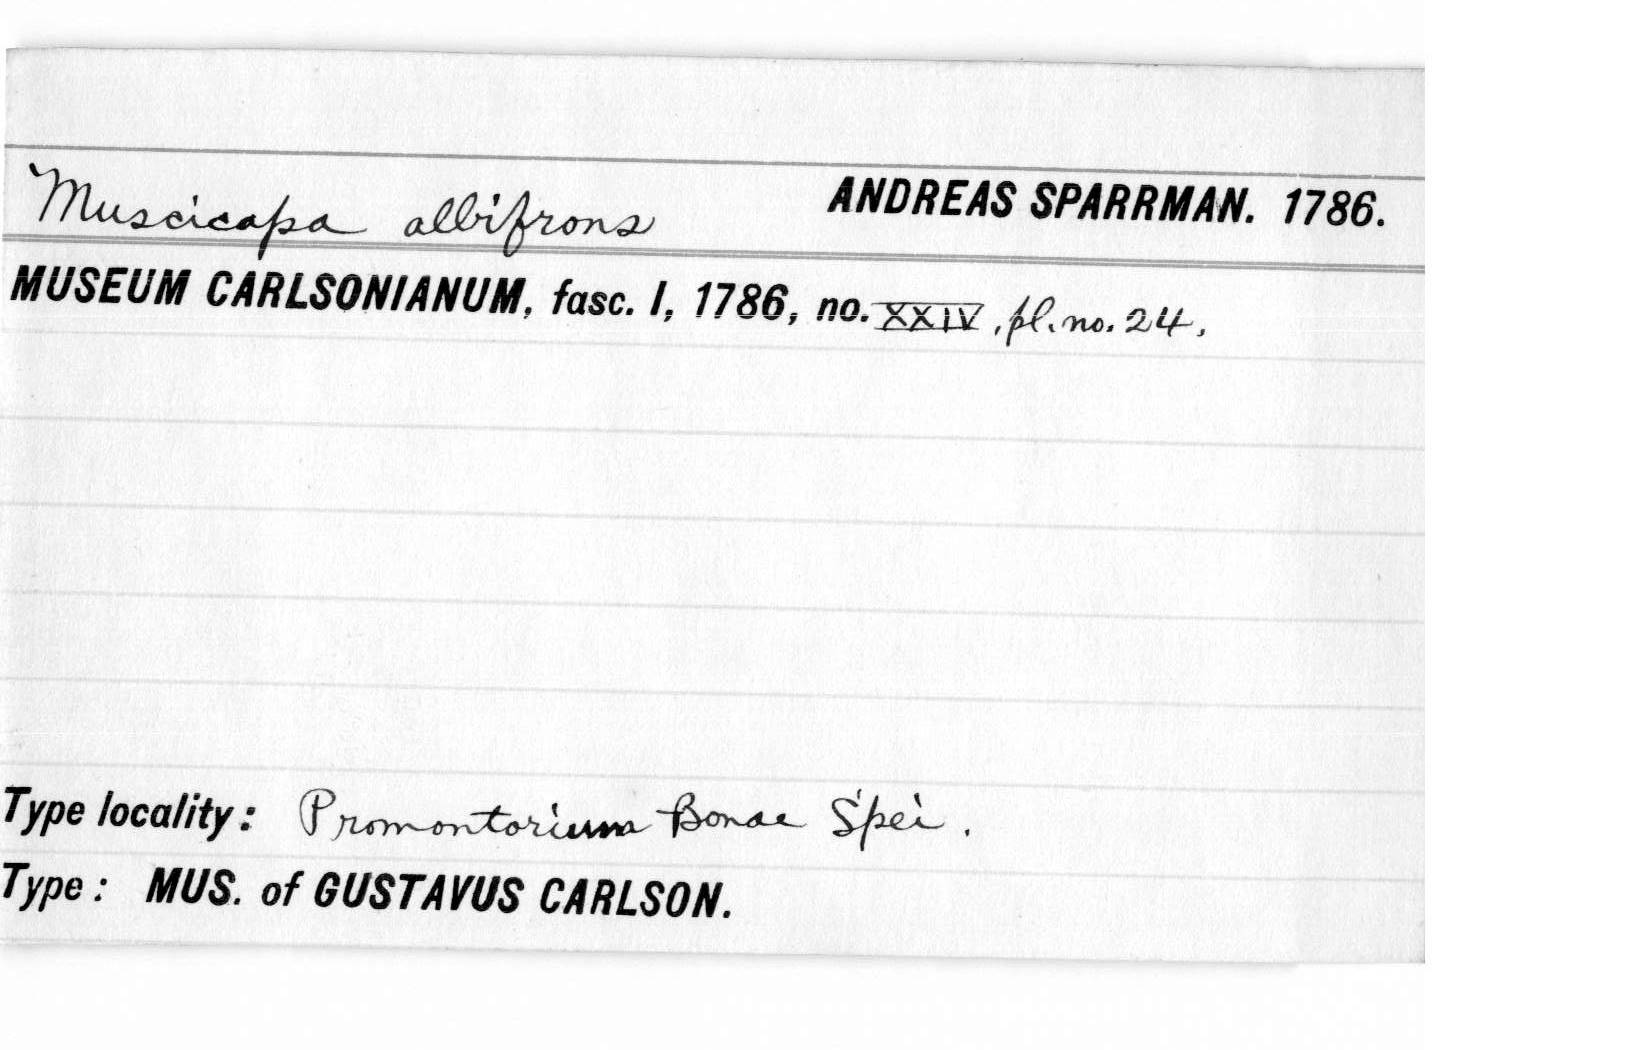 Muscicapa albifrons ANDREAS SPARRMAN. 1786.
MUSEUM CARLSONIANUM, fasc. I, 1786, no. XXIV, pl. no. 24.
Type locality: Promontorium Bonae Spei.
Type: MUS. of GUSTAVUS CARLSON.